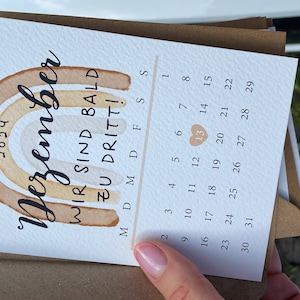 Dezember
2024
WIR SIND BALD
ZU DRITT!
M D M D F S S
1
2 3 4 5 6 7 8
9 10 11 12 13 14 15
16 17 18 19 20 21 22
23 24 25 26 27 28 29
30 31